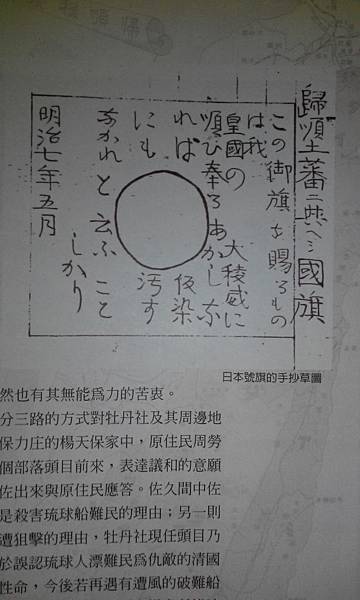 歸順土蕃ニ與ヘシ國旗
この御旗を賜るもの
は我
皇國の 大稜威に
順ひ奉るあかしな
れば 仮染
にも 汚す
なかれと云ふこと
しかり
明治七年五月
日本號旗的手抄草圖
然也有其無能爲力的苦衷。
分三路的方式對牡丹社及其周邊地
保力庄的楊天保家中，原住民周勞
個部落頭目前來，表達議和的意願
佐出來與原住民應答。佐久間中佐
是殺害琉球船難民的理由；另一則
遭狙擊的理由，牡丹社現任頭目乃
於誤認琉球人漂難民爲仇敵的清國
性命，今後若再遇有遭風的破難船